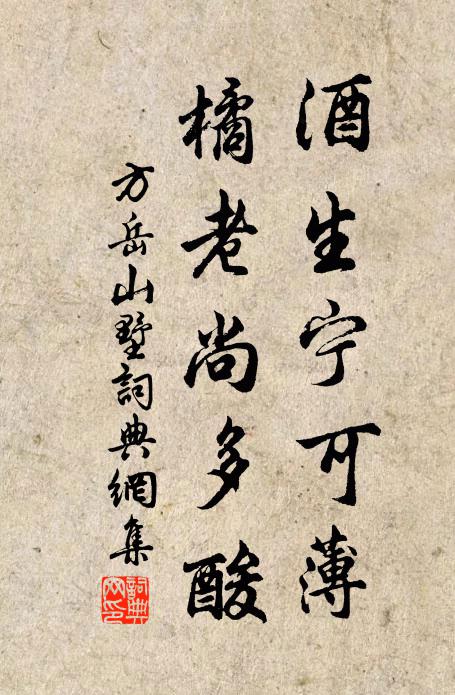 酒生宁可薄
橘老尚多酸
方岳山墅詞典網集
詞典
网印